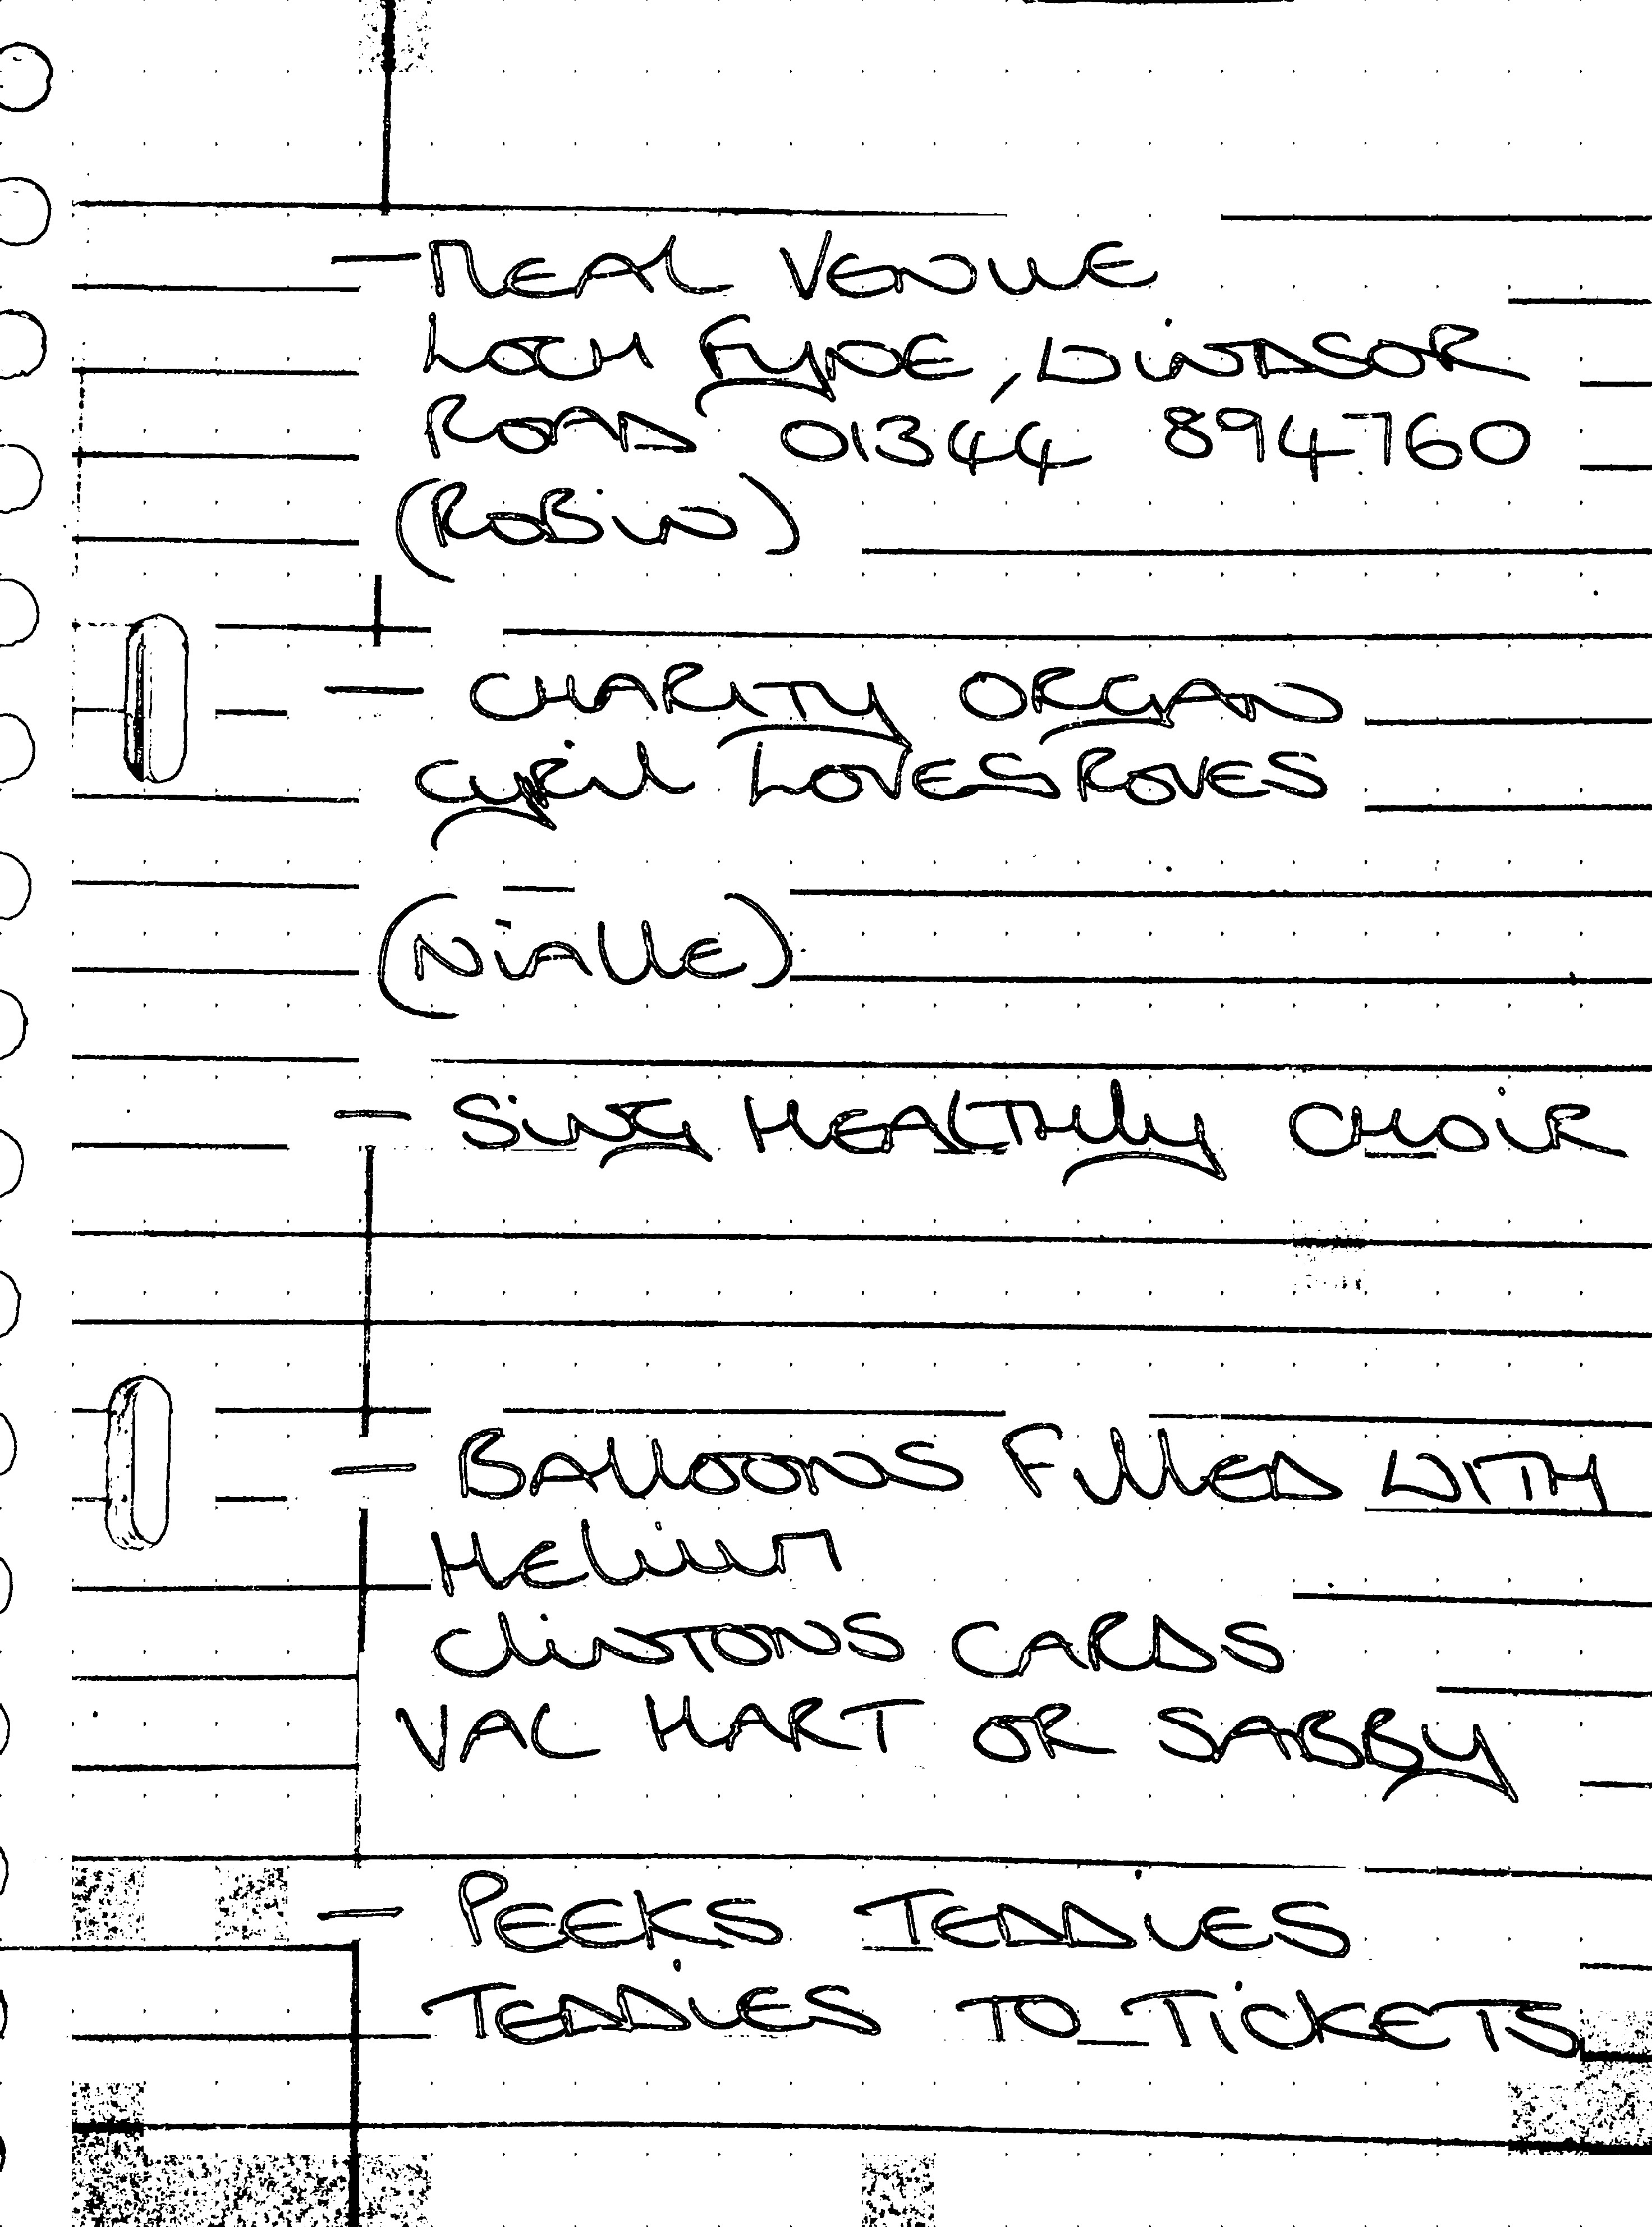 - MEAL VENUE
LOCH FYNE, WINDSOR
ROAD 01344 894760
(ROBIN)
- CHARITY ORGAN
CYRIL LOVESROVES
(NIALLE)
- SING HEALTHILY CHOIR
- BALLOONS FILLED WITH
HELIUM
CLINTONS CARDS
VAL HART OR SABBY
- PEEKS TEDDIES
TEDDIES TO TICKETS